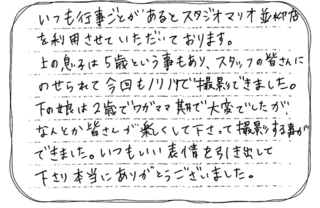 いつも行事ごとがあるとスタジオマリオ並柳店
を利用させていただいております。
上の息子は5歳という事もあり、スタッフの皆さんに
のせられて今回もノリノリで撮影できました。
下の娘は2歳でワガママ期で大変でしたが、
なんとか皆さんが楽しくして下さって撮影する事が
できました。いつもいい表情を引き出して
下さり本当にありがとうございました。